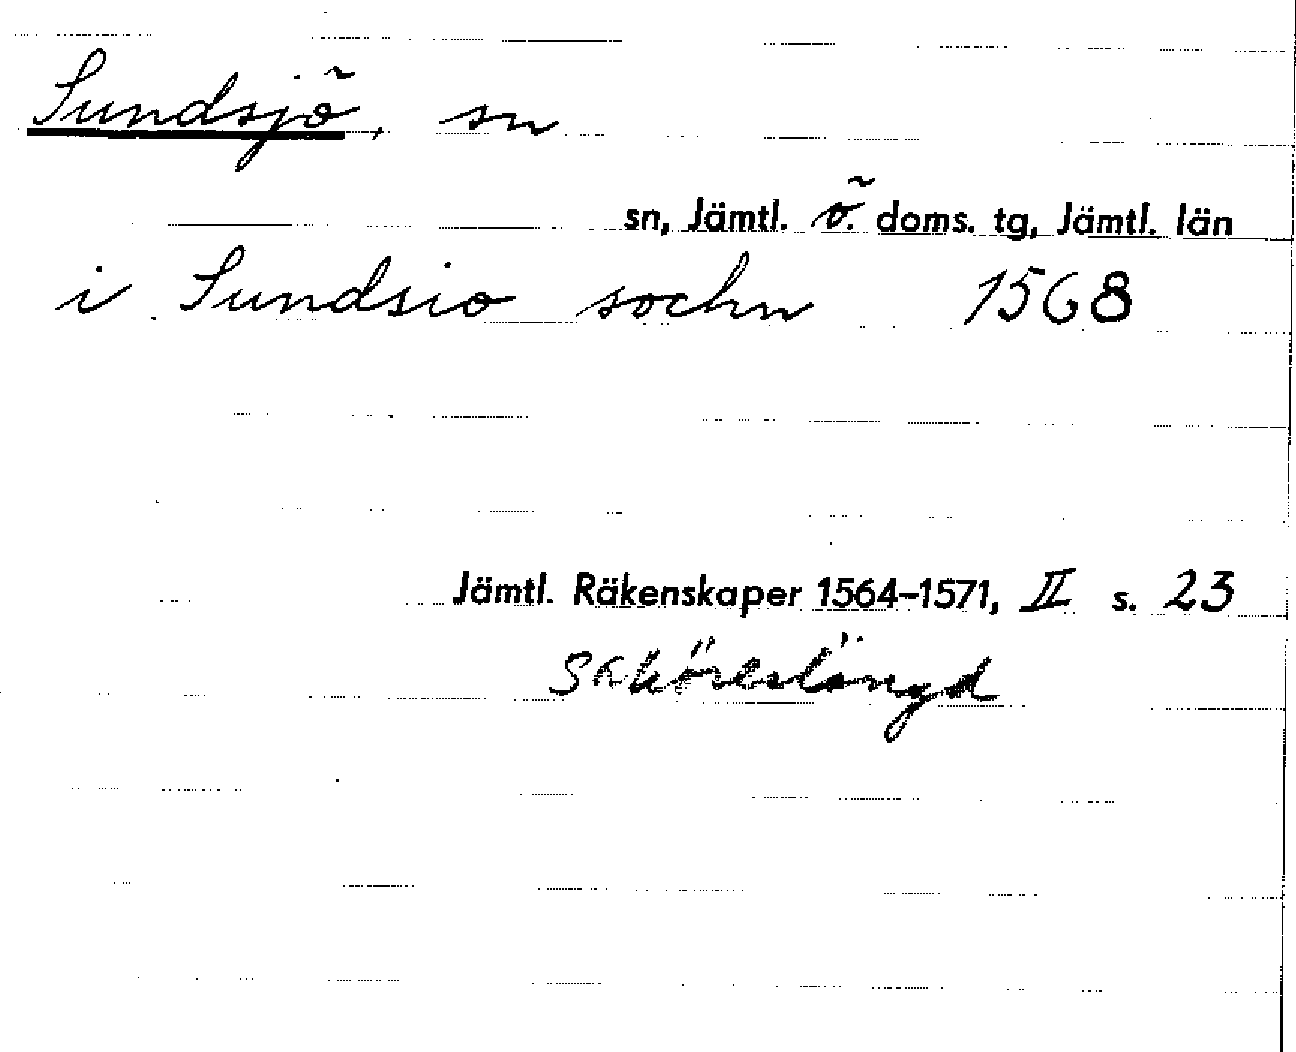 Sundsjö, sn
sn, Jämtl. ö. doms. tg, Jämtl. län
i Sundsio sochn 1568
Jämtl. Räkenskaper 1564–1571, II s. 23
Saköreslängd